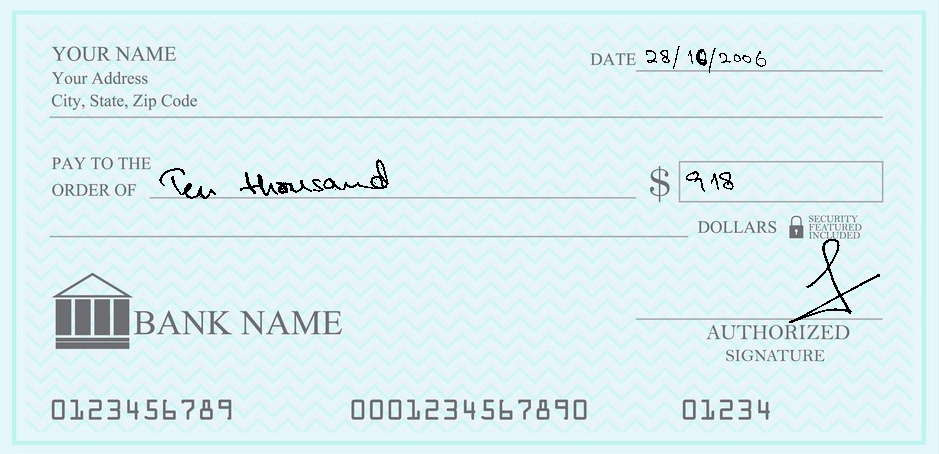 YOUR NAME
Your Address
City, State, Zip Code
DATE 28/10/2006
PAY TO THE
ORDER OF Ten thousand $ 918
DOLLARS SECURITY
FEATURED
INCLUDED
BANK NAME
AUTHORIZED
SIGNATURE
0123456789 0001234567890 01234